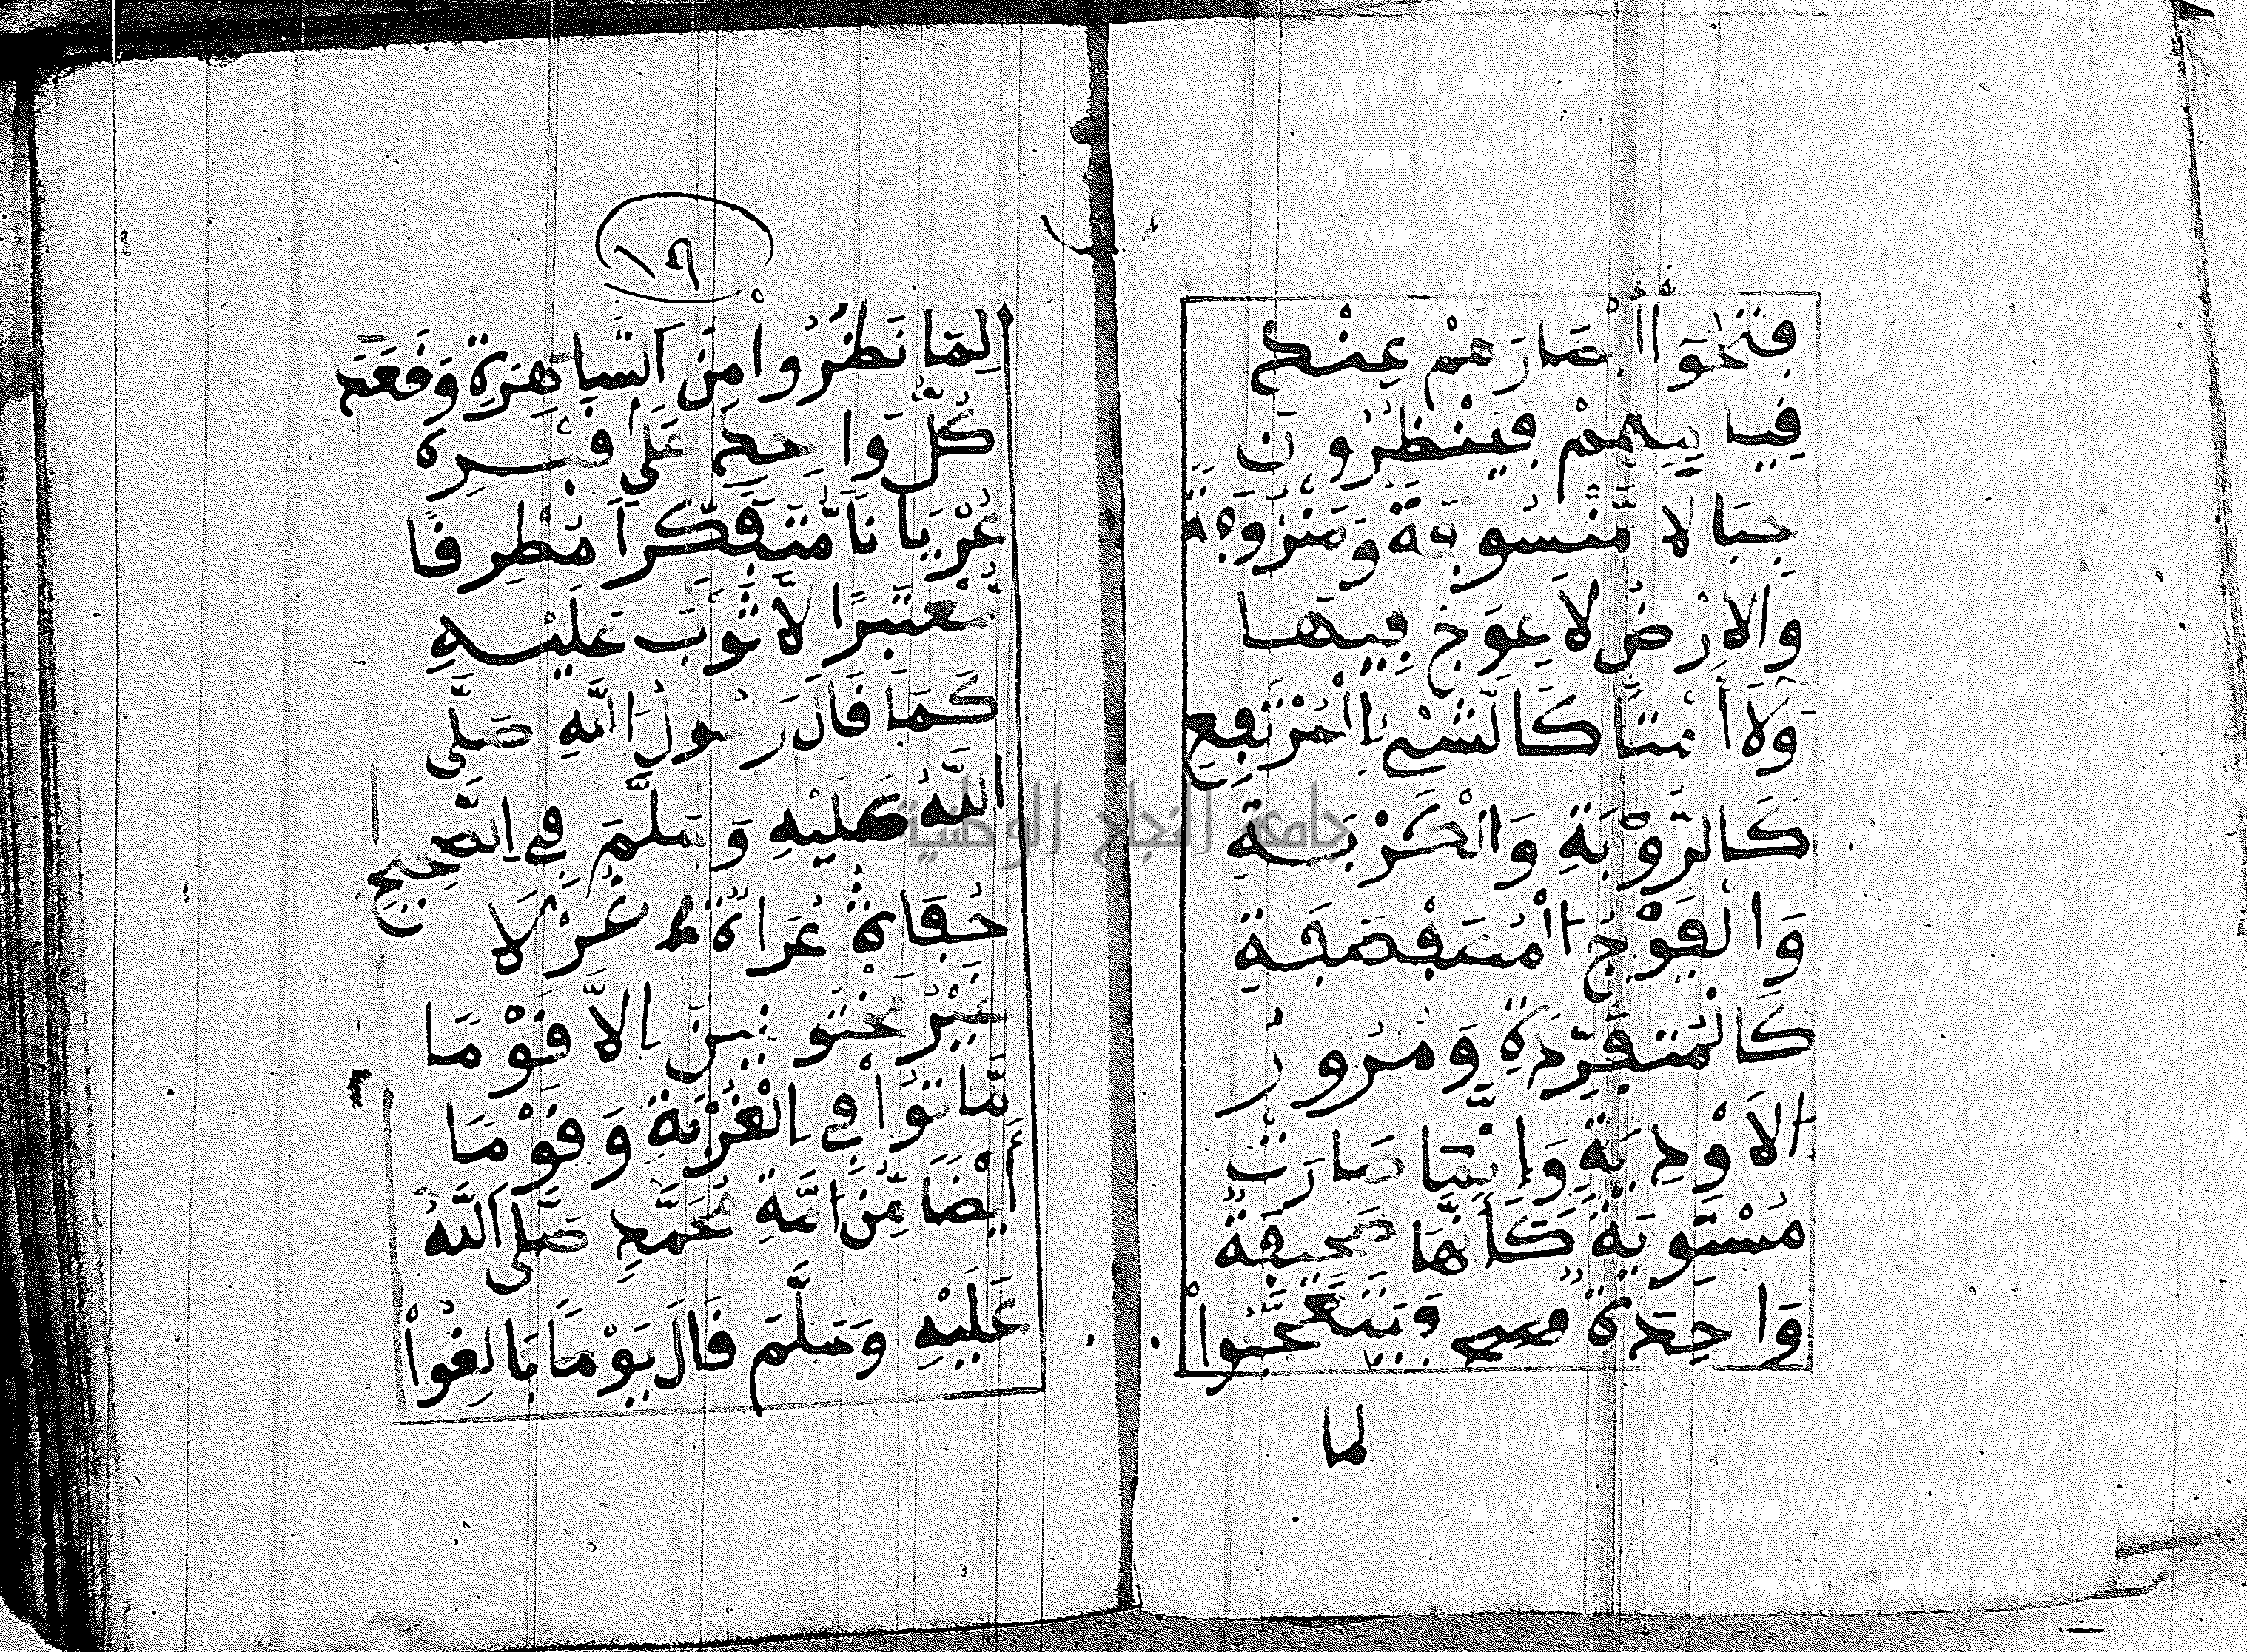 فَتَحُوا أَبْصَارَهُمْ عِنْدَ
قِيَامِهِمْ فَيَنْظُرُونَ
جِبَالًا مَّنْسُوفَةً وَمَنْزُوفَةً
وَالْأَرْضُ لَا عِوَجَ فِيهَا
وَلَا أَمْتًا كَالشَّيْءِ الْمُرْتَفِعِ
كَالرَّوْبَةِ وَالْحَرْبَةِ
وَالْفَوْجُ
كَالْمُتَفَرِّدَةِ وَمُرُورُ
الْأَوْدِيَةِ وَإِنَّمَا صَارَتْ
مُسْتَوِيَةً كَأَنَّهَا صَحِيفَةٌ
وَاحِدَةٌ وَيَتَعَجَّبُوا
لما
١٩
لِمَا نَظَرُوا مِنَ السَّاهِرَةِ وَقَعَدَ
كُلُّ وَاحِدٍ عَلَى قَبْرِهِ
عُرْيَانًا مُّتَفَكِّرًا مُطْرِقًا
مُعْتَبِرًا لَا ثَوْبَ عَلَيْهِ
كَمَا قَالَ رَسُولُ اللَّهِ صَلَّى
اللَّهُ عَلَيْهِ وَسَلَّمَ فِي الصَّحِيحِ
حُفَاةً عُرَاةً غُرْلًا
غَيْرَ مَخْتُونِينَ إِلَّا قَوْمًا
مَّاتُوا فِي الْغُرْبَةِ وَقَوْمًا
أَيْضًا مِّنْ أُمَّةِ مُحَمَّدٍ صَلَّى اللَّهُ
عَلَيْهِ وَسَلَّمَ قَالَ يَوْمًا بَالِغُوا
جامعة النجاح الوطنية